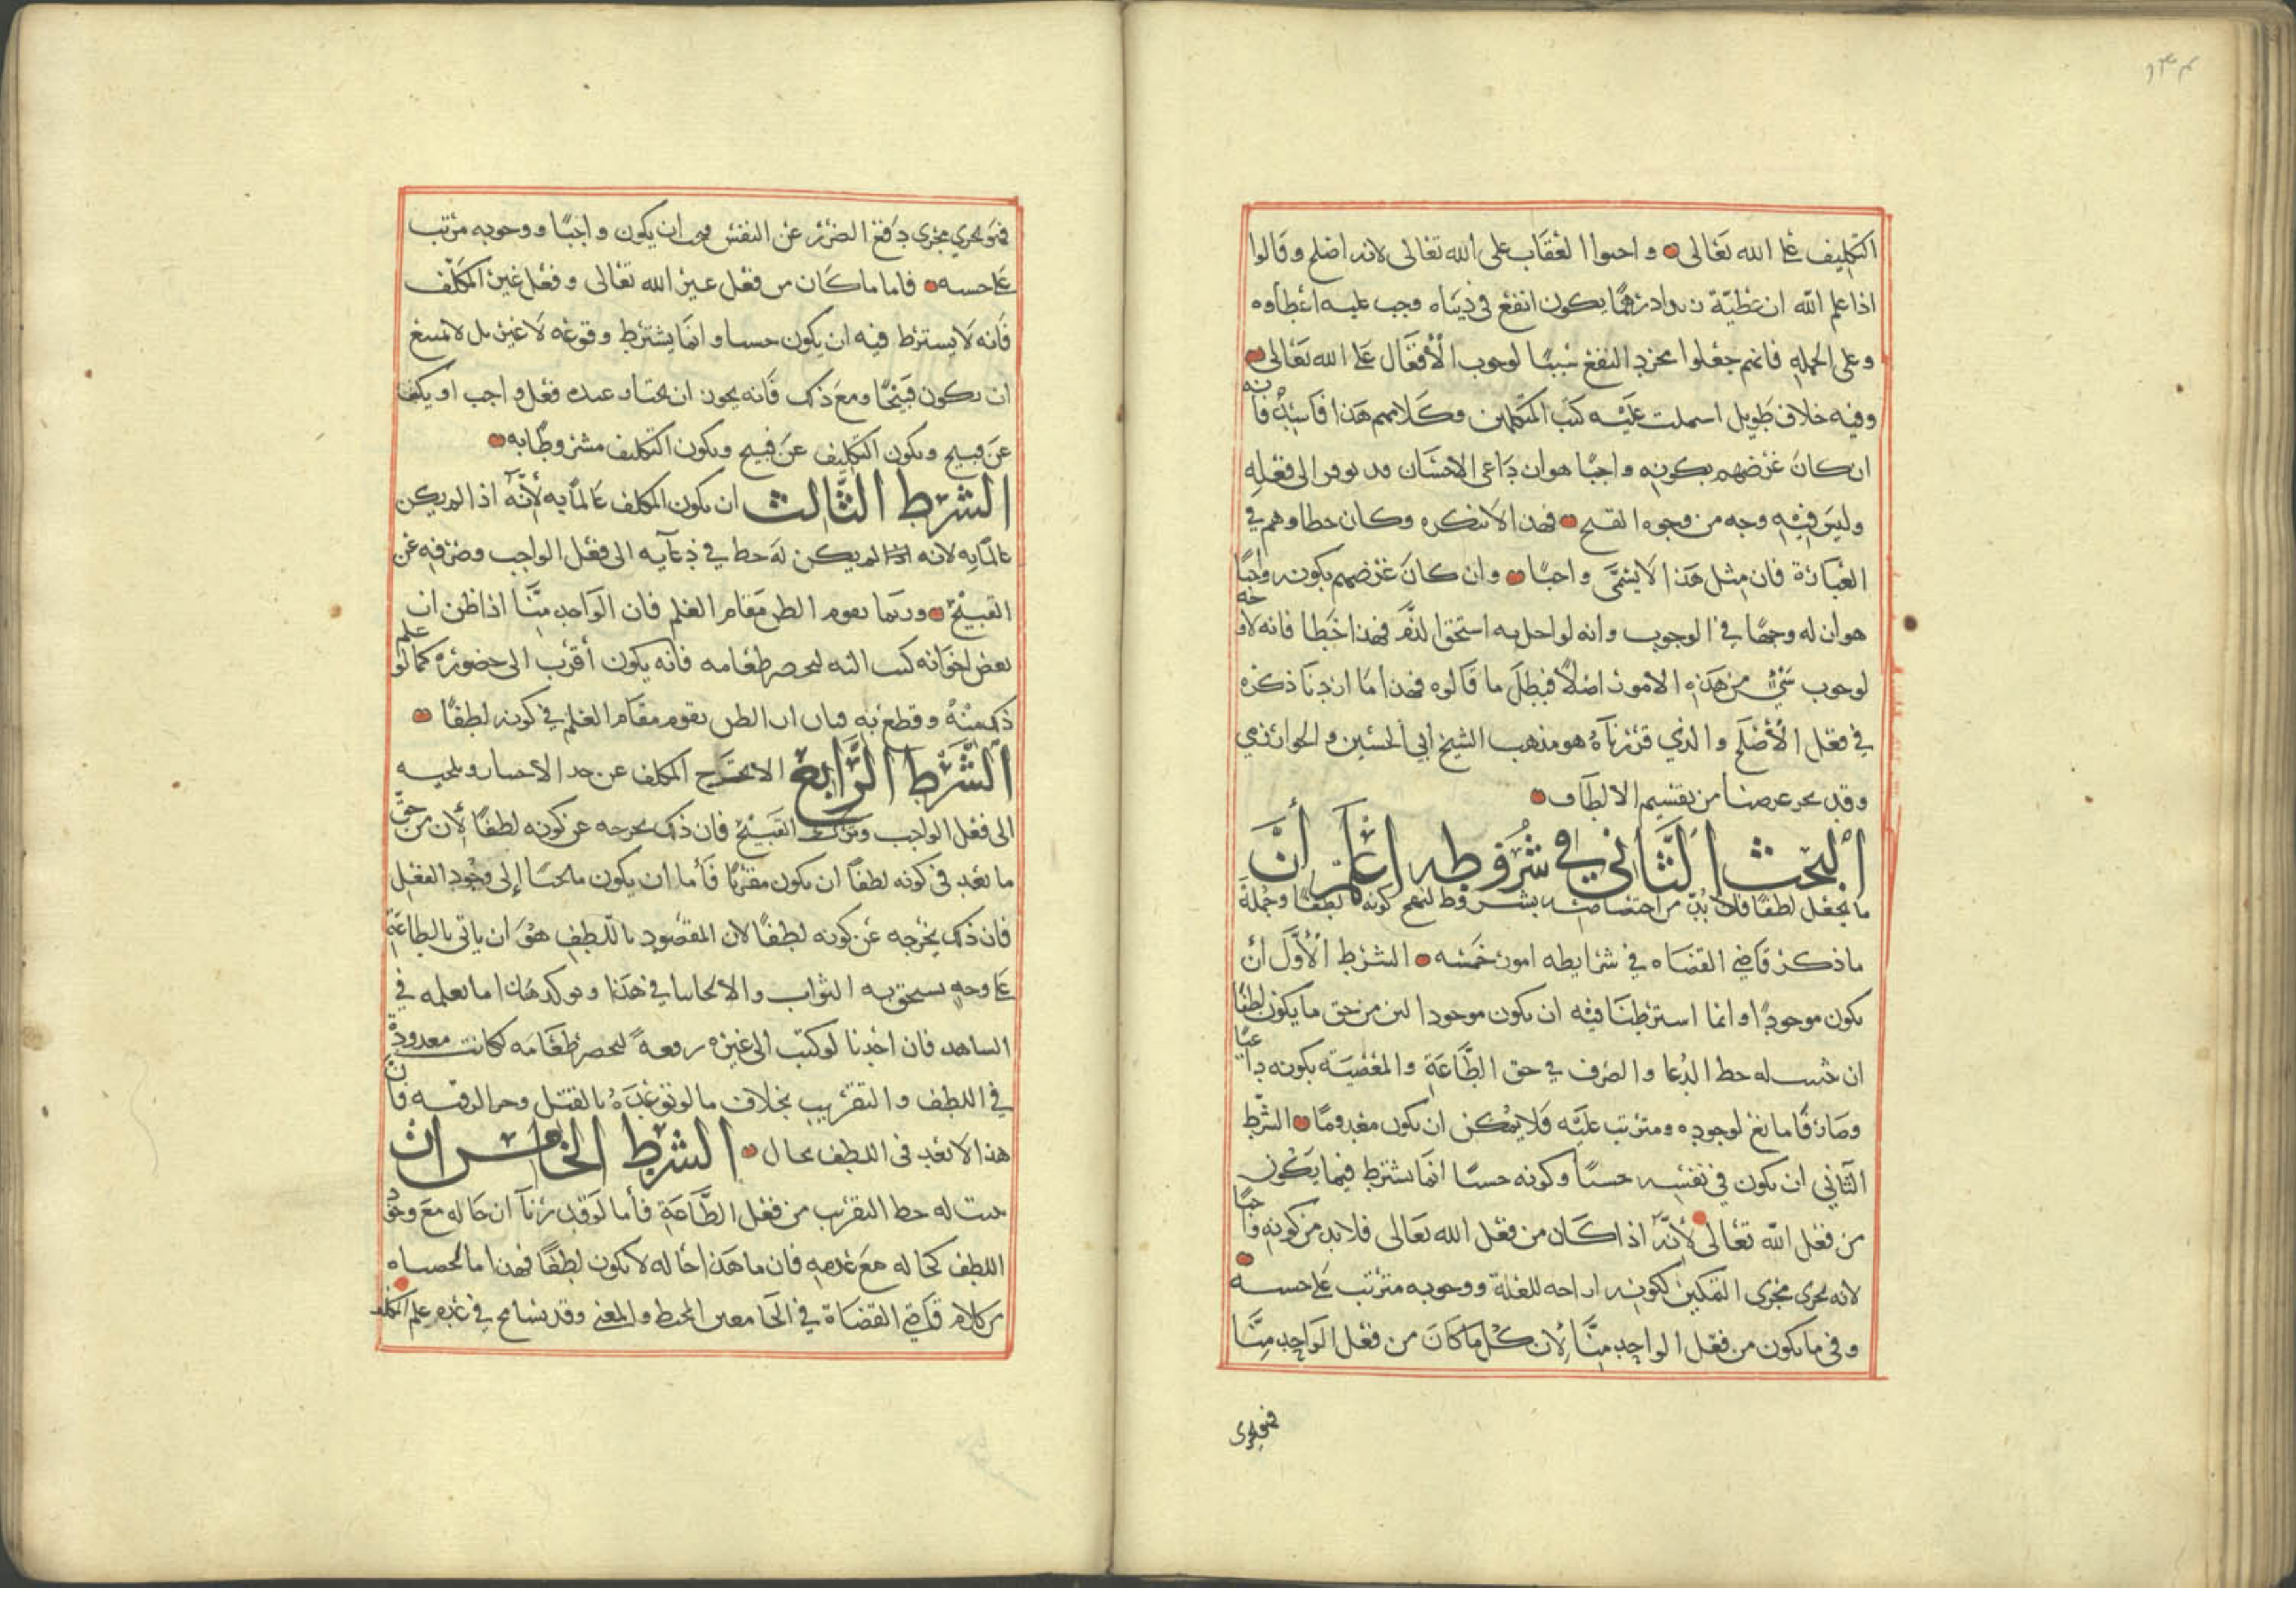 ١٣٤
التكليف على الله تعالى واحبوا العقاب على الله تعالى لانه اصلح وقالوا
اذا علم الله ان عطية زيد ادرهما يكون انفع في دنياه وجب عليه اعطاوه
وعلى الجملة فانهم جعلوا مجرد النفع سببا لوجوب الأفعال على الله تعالى
وفيه خلاف طويل اسملت عليه كتب المتكلمين وكلامهم هذا فاسد فانه
ان كان غرضهم بكونه واجبا هو ان داعي الاحسان قد توفر الى فعله
وليس فيه وجه من وجوه القبح فهذا لا ننكره وكان خطاوهم في
العبارة فان مثل هذا لا يسمى واجبا وان كان غرضهم بكونه واجبا
هو ان له وجها في الوجوب وانه لو اخل به استحق الذم فهذا خطا فانه لا وجه
لوجوب شيء من هذه الامور اصلا فبطل ما قالوه فهذا ما اردنا ذكره
في فعل الأصلح والذي قررناه هو مذهب الشيخ ابي الحسين والخوارزمي
وقد نجز غرضنا من تقسيم الالطاف
البحث الثاني في شروطه اعلم أن
ما نجعل لطفا فلا بد من اختصاصه بشروط لنصح كونه لطفا وجملة
ما ذكر قاضي القضاه في شرايطه امور خمسه الشرط الأول أن
يكون موجودا وانما اشترطنا فيه ان يكون موجودا لان من حق ما يكون لطفا
ان يثبت له حظ الدعا والصرف في حق الطاعة والمعصية بكونه داعيا
وصارفا مانع لوجوده ومترتب عليه فلا يمكن ان يكون معدوما الشرط
الثاني ان يكون في نفسه حسنا وكونه حسنا انما يشترط فيما يكون
من فعل الله تعالى لأنه اذا كان من فعل الله تعالى فلا بد من كونه واجبا
لانه يجري مجرى التمكين لكونه ازاحه للعلة ووجوبه مترتب على حسنه
وفي ما يكون من فعل الواحد منا لأن كل ما كان من فعل الواحد منا
فهو يجرى
فهو يجري مجرى دفع الضرر عن النفس فيجب ان يكون واجبا ووجوبه مرتب
على حسنه فاما ما كان من فعل غير الله تعالى وفعل غير المكلف
فانه لا يشترط فيه ان يكون حسنا وانما يشترط وقوعه لا غير بل لا يمتنع
ان يكون قبيحا ومع ذلك فانه يجوز ان يختار عنده فعل واجب او يكف
عن قبيح ويكون التكليف عن قبيح ويكون التكليف مشروطا به
الشرط الثالث ان يكون المكلف عالما به لأنه اذا لم يكن
عالما به لانه اذا لم يكن له حظ في دعايه الى فعل الواجب وصرفه عن
القبيح وربما يقوم الظن مقام العلم فان الواحد منا اذا ظن ان
بعض اخوانه كتب اليه ليحضر طعامه فانه يكون أقرب الى حضوره كما لو علم
ذلك منه وقطع به فبان ان الظن يقوم مقام العلم في كونه لطفا
الشرط الرابع الا يخرج المكلف عن حد الاختيار ويلجيه
الى فعل الواجب وترك القبيح فان ذلك يخرجه عن كونه لطفا لأن من حق
ما نعد في كونه لطفا ان يكون مقربا فأما ان يكون ملجئا إلى وجود الفعل
فان ذلك يخرجه عن كونه لطفا لان المقصود باللطف هو ان ياتي بالطاعة
على وجه يستحق به الثواب والالجا ينافي هذا ويوكد هذا ما نعلمه في
الشاهد فان احدنا لو كتب الى غيره رقعة ليحضر طعامه لكانت معدودة
في اللطف والتقريب بخلاف ما لو توعده بالقتل وحز الرقبه فان
هذا لا نعد في اللطف بحال الشرط الخامس ان
يثبت له حظ التقريب من فعل الطاعة فأما لو قدرنا ان حاله مع وجود
اللطف كحاله مع عدمه فان ما هذا حاله لا يكون لطفا فهذا ما لخصناه
من كلام قاضي القضاة في الجامعين المحيط والمغني وقد تسامح في عدم علم المكلف